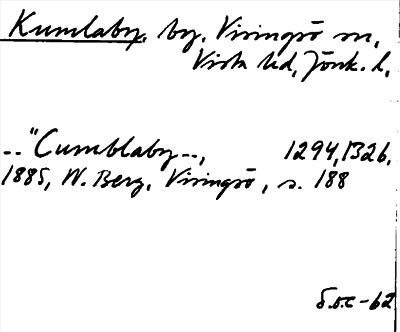 Kumlaby, by, Visingsö sn,
Vista hd, Jönk. l.
--"Cumblaby--, 1294, 1326,
1885, W. Berg, Visingsö, s. 188
S.O.C -62